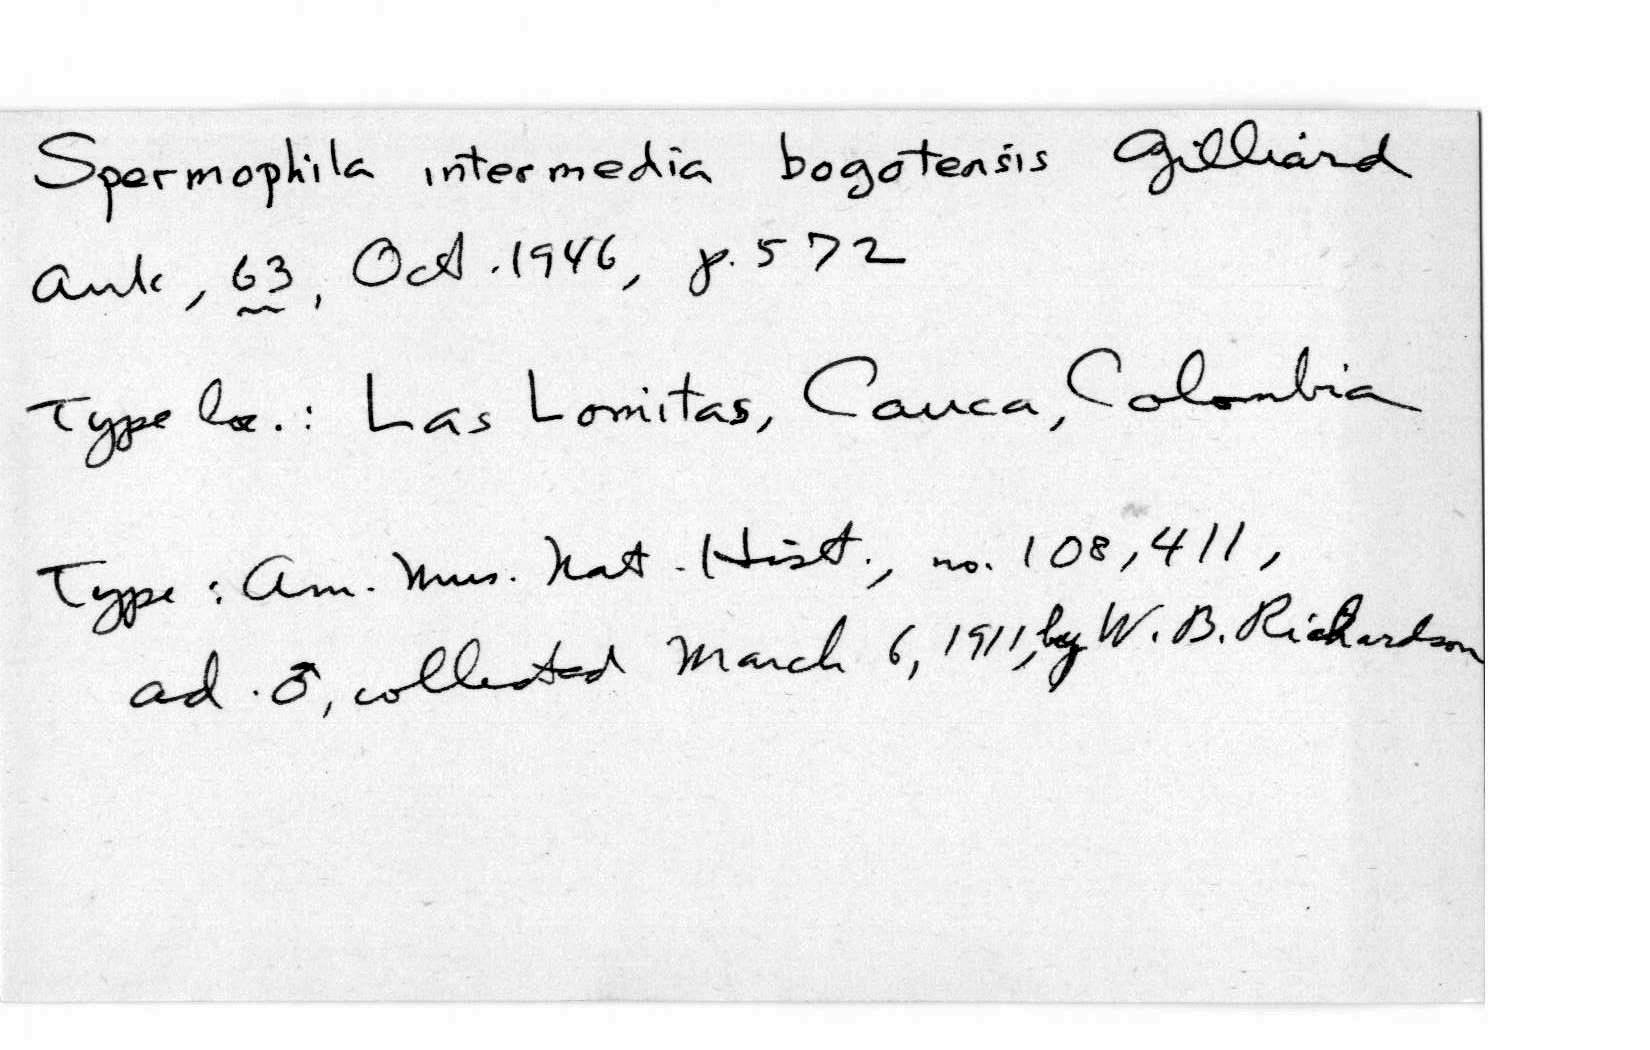 Spermophila intermedia bogotensis Gilliard
Auk, 63, Oct. 1946, p. 572
Type loc.: Las Lomitas, Cauca, Colombia
Type: Am. Mus. Nat. Hist., no. 108,411,
ad. ♂, collected March 6, 1911, by W. B. Richardson